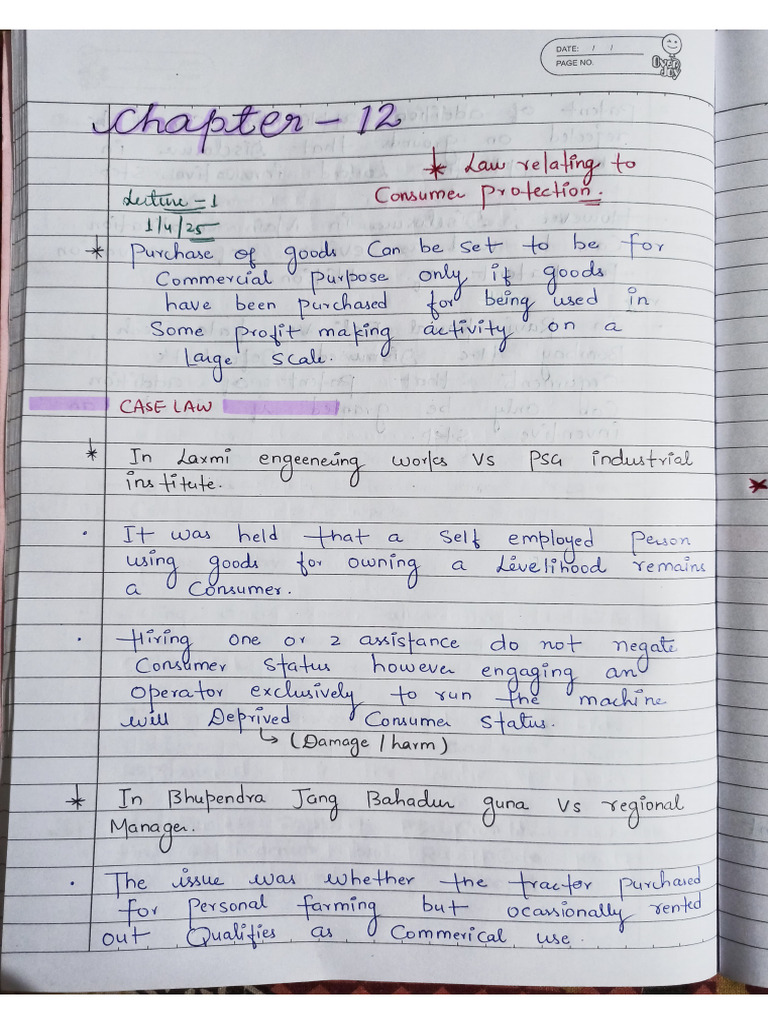 DATE: / /
PAGE NO.
Over Joy
Chapter - 12
* Law relating to
Consumer Protection.
Lecture - 1
1/4/25
* Purchase of goods Can be set to be for
Commercial purpose only if goods
have been purchased for being used in
Some profit making activity on a
Large scale.
CASE LAW
* In Laxmi engeeneeing works Vs PSG industrial
institute.
. It was held that a Self employed Person
using goods for owning a Livelihood remains
a Consumer.
. Hiring one or 2 assistance do not negate
Consumer status however engaging an
Operator exclusively to run the machine
will Deprived Consumer Status.
↳ (Damage / harm)
* In Bhupendra Jang Bahadur guna Vs regional
Manager.
. The issue was whether the tractor purchased
for Personal farming but ocassionally rented
out Qualifies as Commerical use.